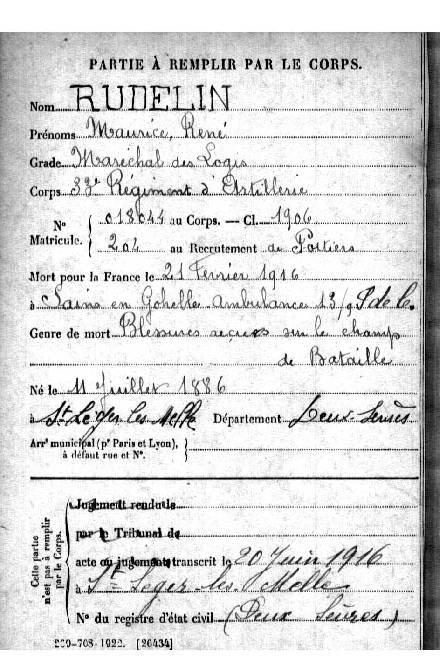 PARTIE À REMPLIR PAR LE CORPS.
Nom RUDELIN
Prénoms Maurice, René
Grade Maréchal des Logis
Corps 33e Régiment d'Artillerie
No Matricule. { 018044 au Corps. — Cl. 1906
204 au Recrutement de Poitiers
Mort pour la France le 21 Fevrier 1916
à Sains en Gohelle ambulance 13/9 P. de C.
Genre de mort Blessures reçues sur le champ
de Bataille
Né le 11 Juillet 1886
à St Léger les Melle Département Deux-Sèvres
Arrt municipal (pr Paris et Lyon),
à défaut rue et No.
Celle partie n'est pas à remplir par le Corps.
Jugement rendu le
par le Tribunal de
acte ou jugement transcrit le 20 Juin 1916
à St Leger-les-Melle
No du registre d'état civil (Deux Sèvres)
[26434]